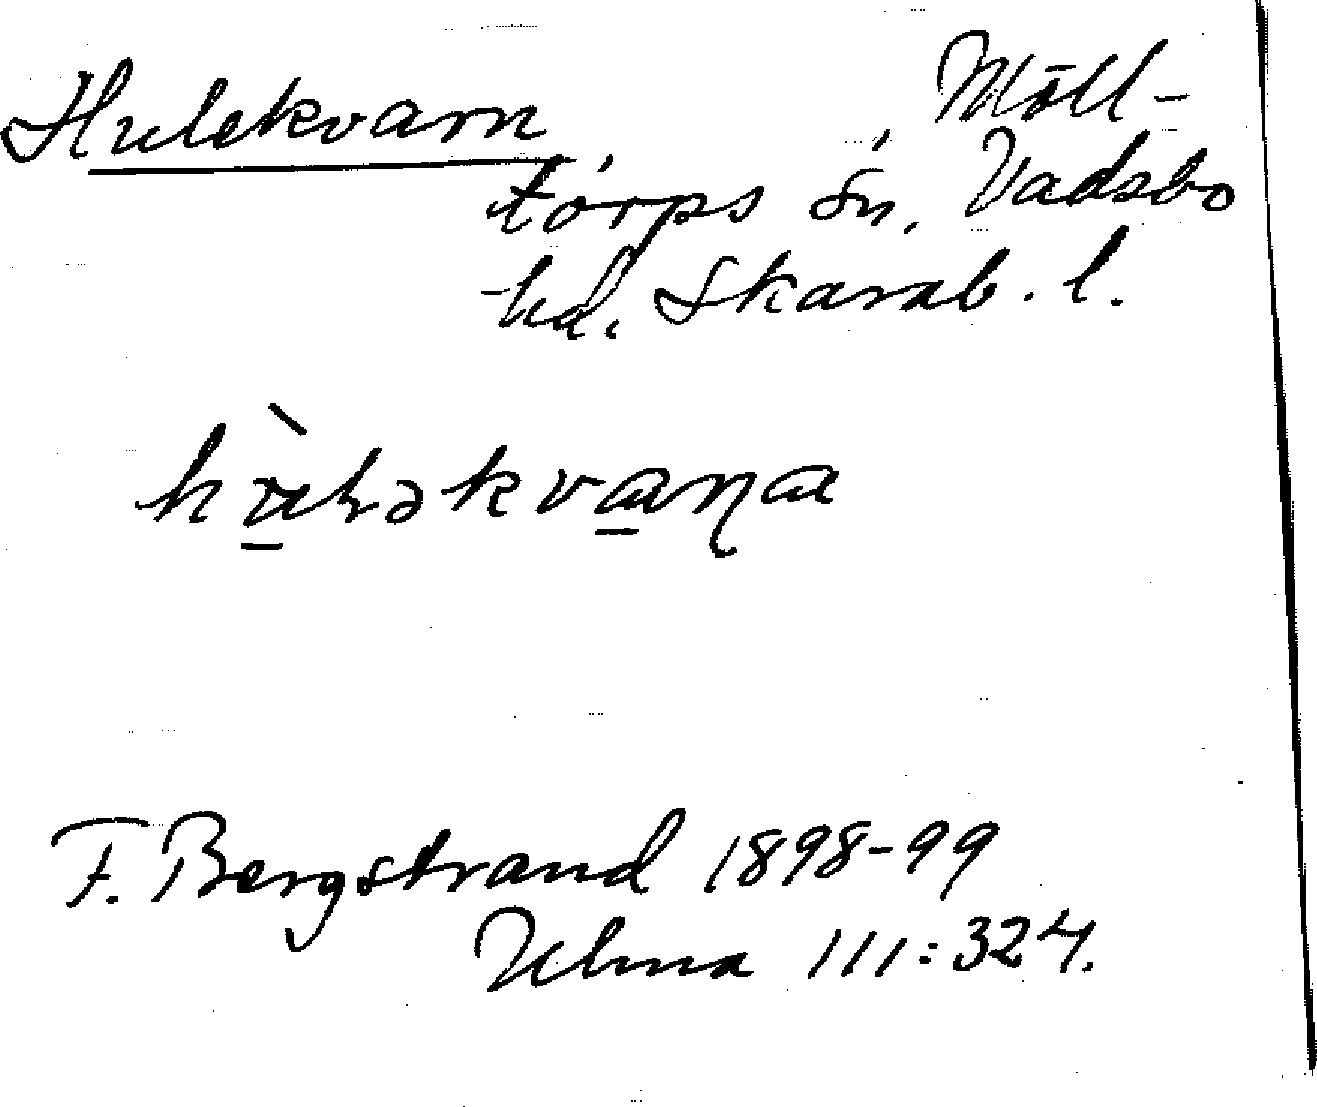 Hulekvarn, Möll-
torps sn, Vadsbo
hd. Skarab. l.
F. Bergstrand 1898-99
Ulma 111:324.